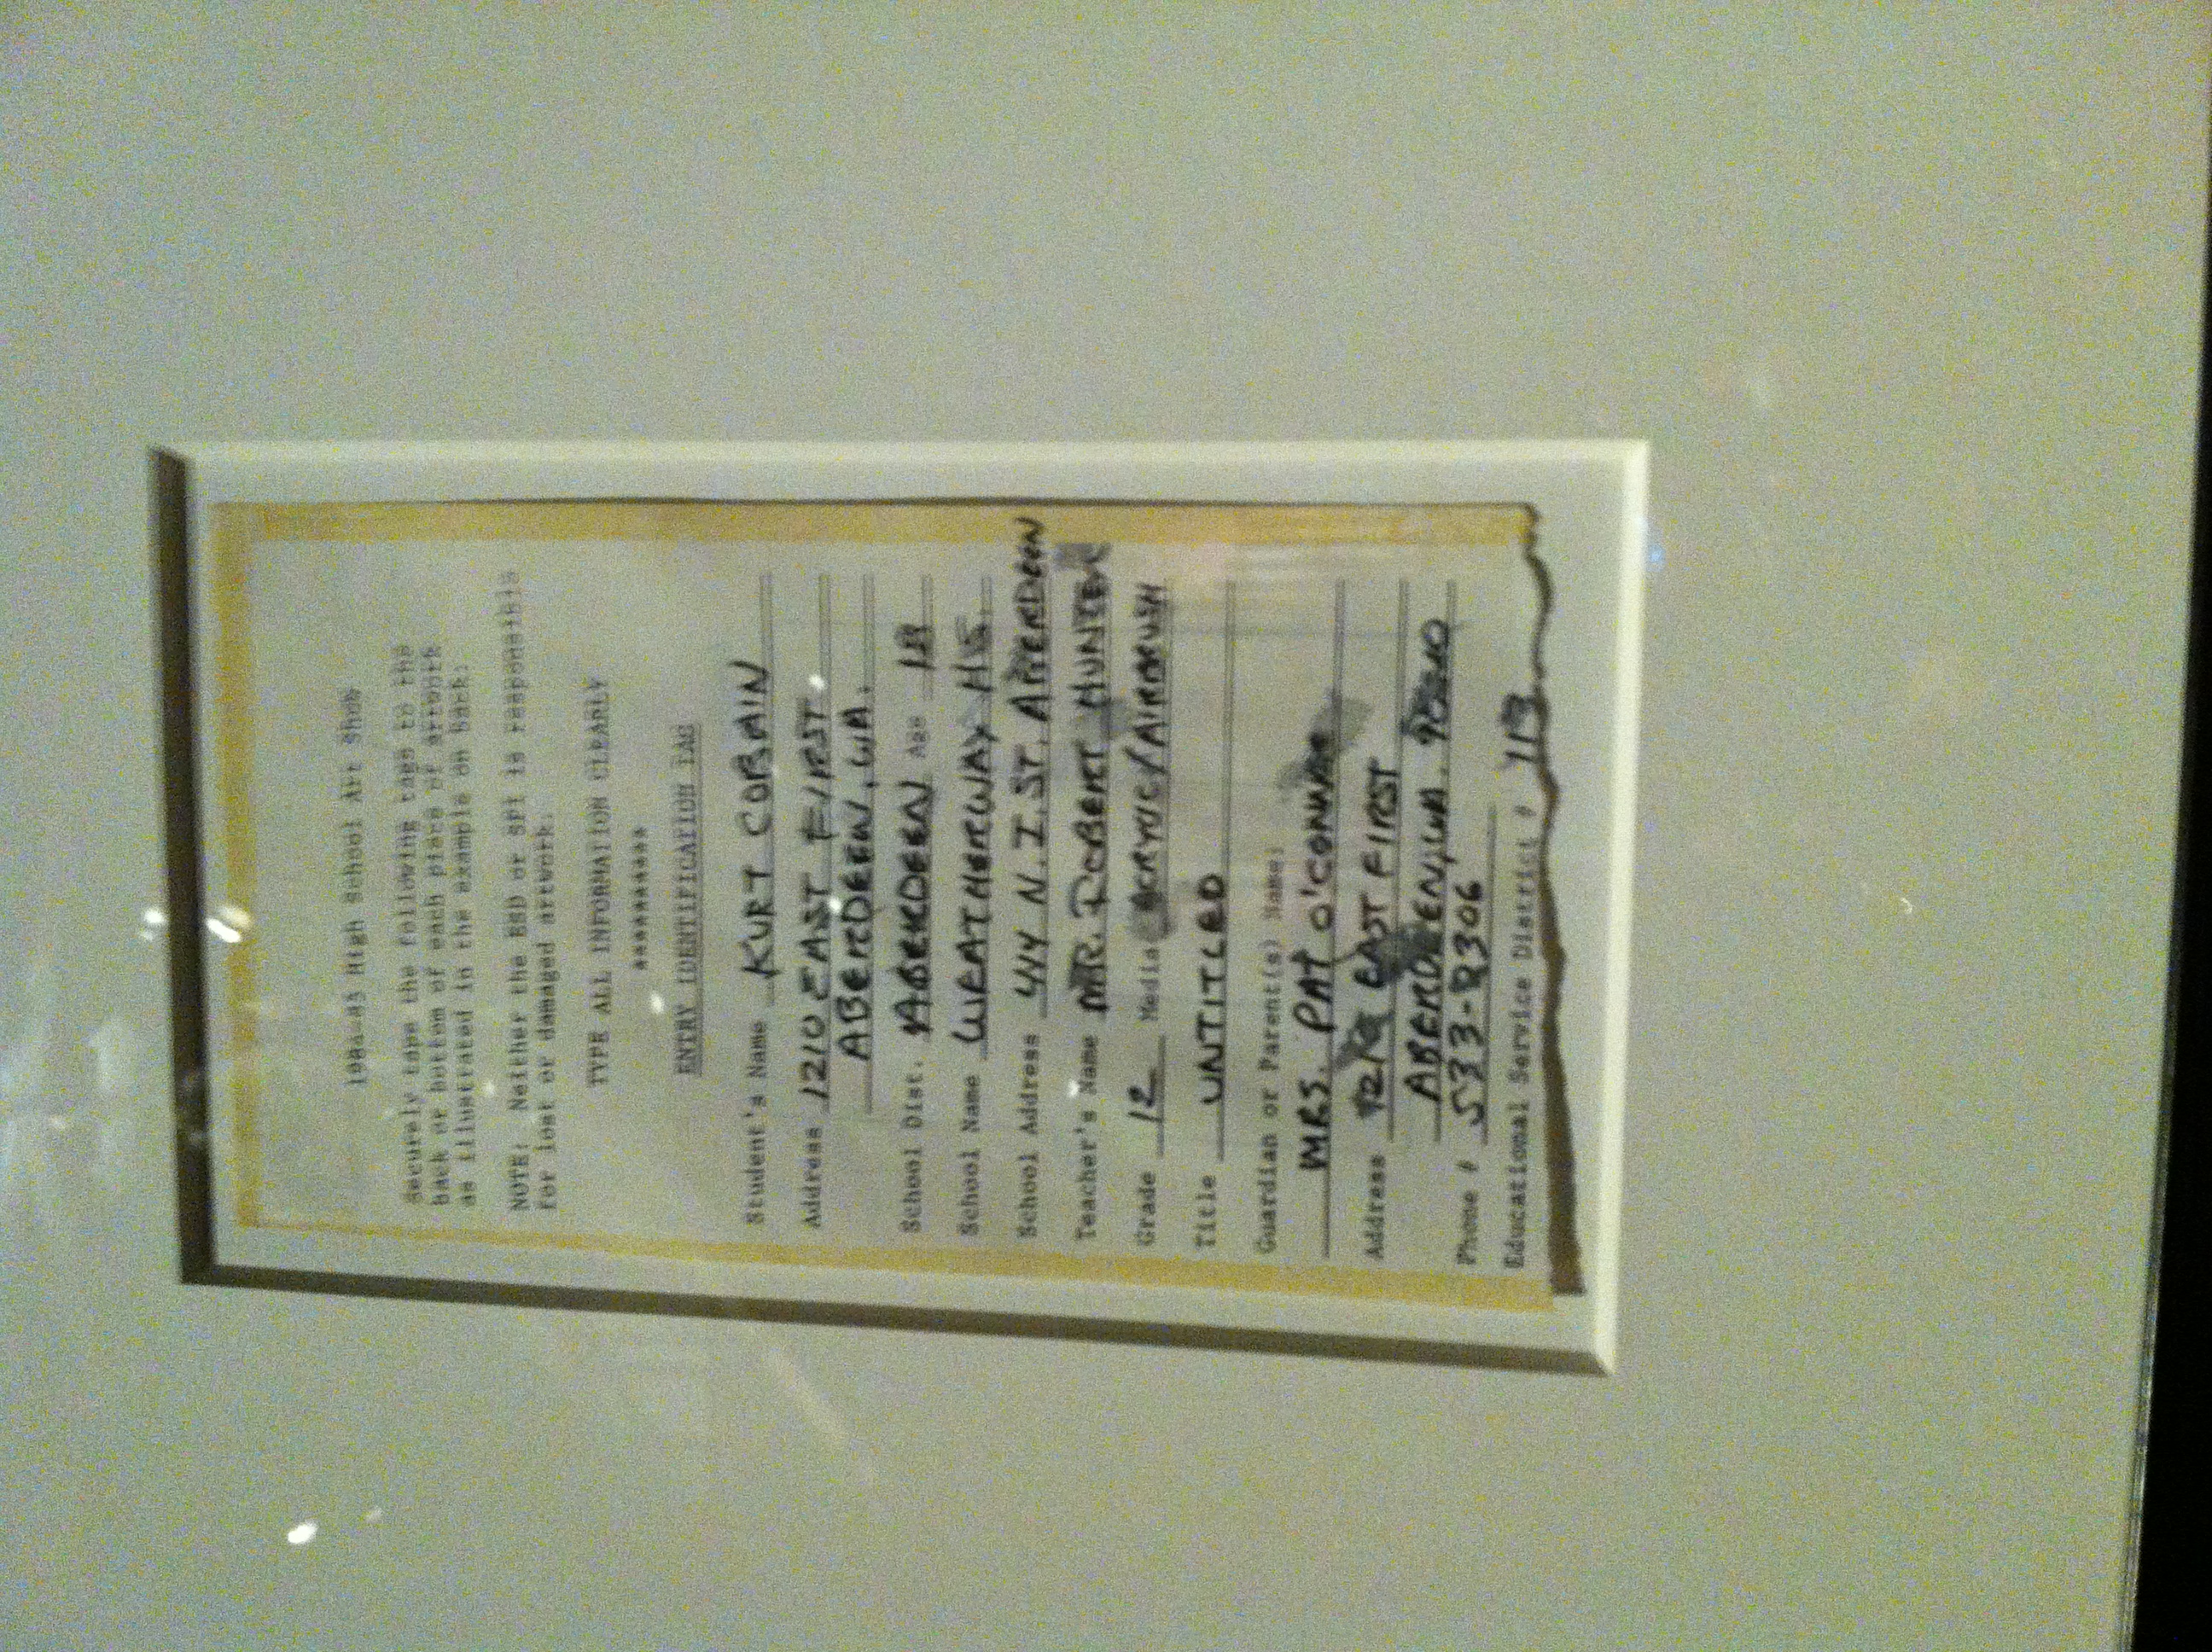 1984-85 High School Art Show
Securely tape the following tags to the
back or bottom of each piece of artwork
as illustrated in the example on back.
NOTE: Neither the ESD or SPI is responsible
for lost or damaged artwork.
TYPE ALL INFORMATION CLEARLY
**********
ENTRY IDENTIFICATION TAG
Student's Name KURT COBAIN
Address 1210 EAST FIRST
ABERDEEN, WA.
School Dist. ABERDEEN Age 18
School Name WEATHERWAX H.S.
School Address 414 N. I. ST. ABERDEEN
Teacher's Name MR. ROBERT HUNTER
Grade 12 Media ACRYLIC/AIRBRUSH
Title UNTITLED
Guardian or Parent(s) Name:
MRS. PAT O'CONNOR
Address EAST FIRST
ABERDEEN, WA.
Phone #
Educational Service District # 113